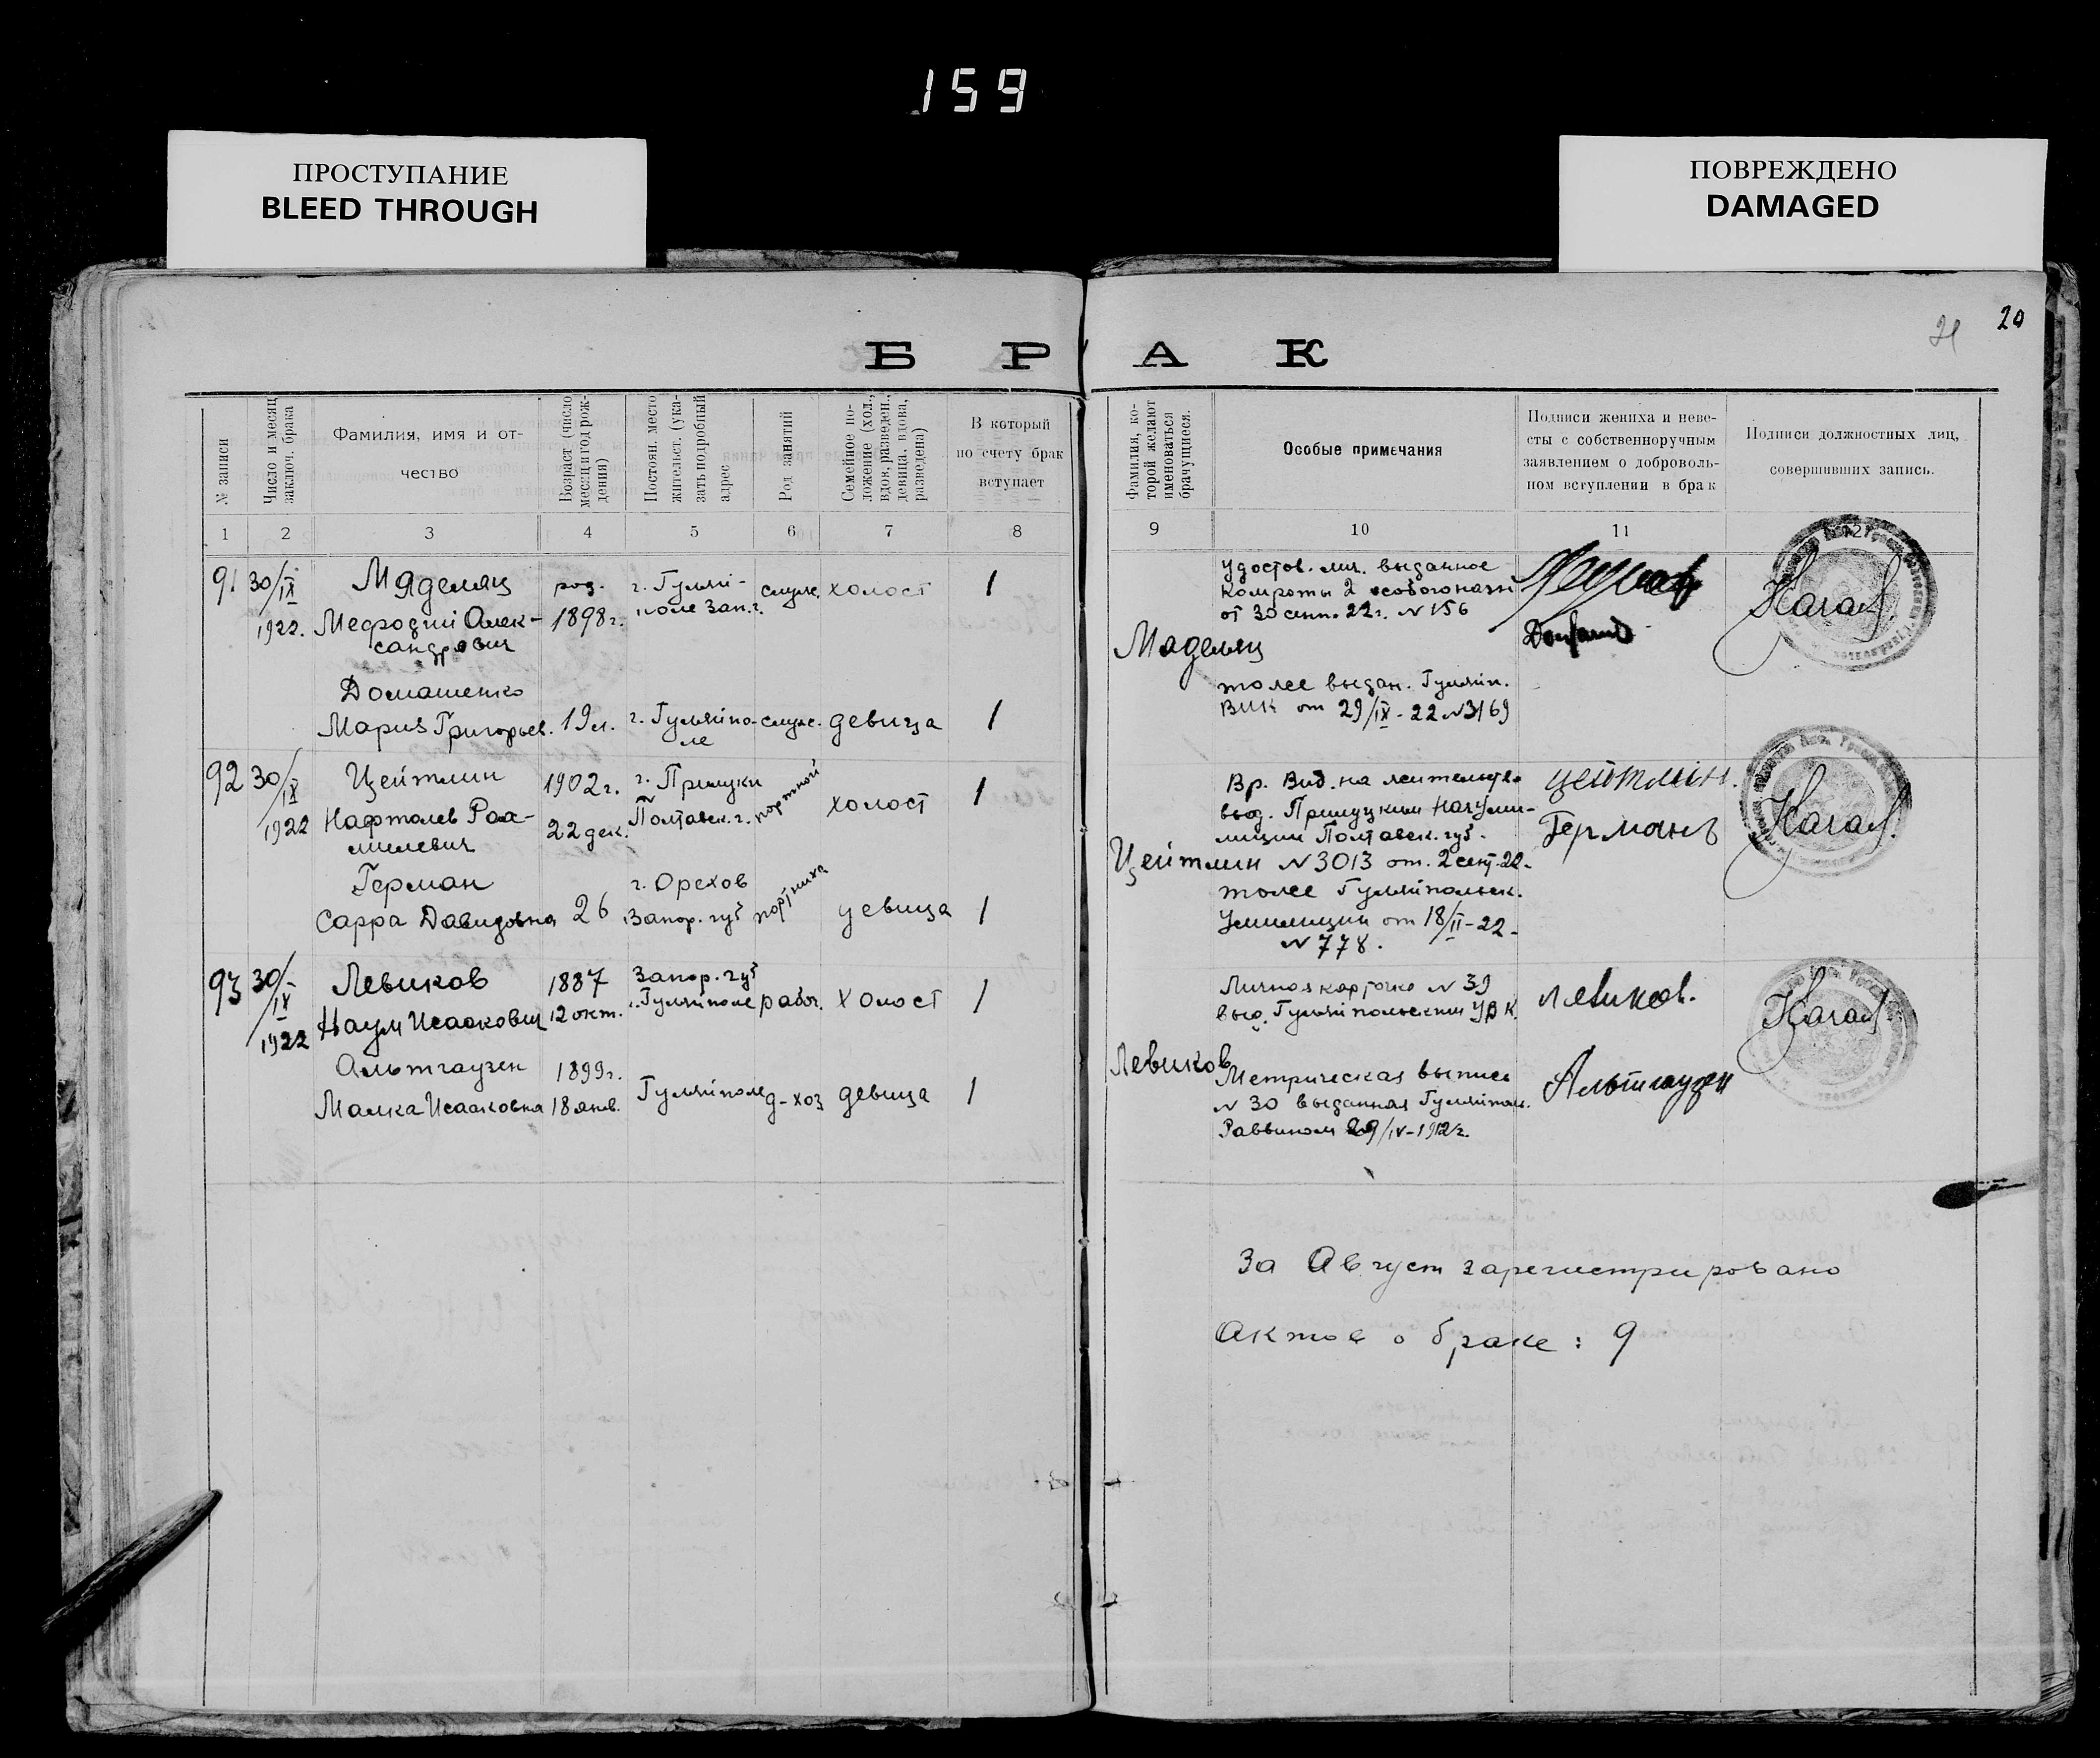 159
ПРОСТУПАНИЕ
BLEED THROUGH
ПОВРЕЖДЕНО
DAMAGED
20
БРАК
№ записи
Число и месяц
заключ. брака
Фамилия, имя и от-
чество
Возраст (число
месяц и год рож-
дения)
Постоян. место
жительст. (ука-
зать подробный
адрес
Род занятий
Семейное по-
ложение (хол.,
вдов, разведен.,
девица, вдова,
разведена)
В который
по счету брак
вступает
Фамилия, ко-
торой желают
именоваться
брачущиеся.
Особые примечания
Подписи жениха и неве-
сты с собственноручным
заявлением о доброволь-
ном вступлении в брак
Подписи должностных лиц,
совершивших запись.
1 2 3 4 5 6 7 8 9 10 11 12
91 30/IX
1922.
Мяделяц
Мефодий Алек-
сандрович
род.
1898г.
г. Гуляй-
поле Зап.г.
служ.
холост
1
Домашенко
Мария Григорьев.
19 л.
г. Гуляйпо-
ле
служ.
девица
1
Мяделяц
удостов. лич. выданное
Комроты 2 особого
от 30 сент. 22г. N 156
тоже выдан. Гуляйп.
ВИК от 29/IX-22 N3169
92 30/IX
1922
Цейтлин
Нафтолев Раа-
милевич
1902г.
22 дек.
г. Прилуки
Полтавск. г.
портной
холост
1
Герман
Сарра Давидовна
26
г. Орехов
Запор. губ
портниха
девица
1
Цейтлин
Вр. Вид. на жительство
выд. Прилуцким Начуми-
лиции Полтавск. губ.
N 3013 от. 2 сент. 22.
тоже Гуляйпольск.
Умилиции от 18/II-22.
N 778.
Цейтлин.
Германъ
93 30/IX
1922
Левиков
Наум Исаакович
1887
12 окт.
Запор. губ
г. Гуляйполе
рабоч.
холост
1
Альтгаузен
Малка Исааковна
1899г.
18 янв.
Гуляйполе
д-хоз
девица
1
Левиков
Личная карточка N 39
выд. Гуляйпольским УВК.
Метрическая выпись
N 30 выданная Гуляйполь.
Раввином 29/IV-1912г.
Левиков.
Альтгаузен
За Август зарегистрировано
Актов о браке: 9